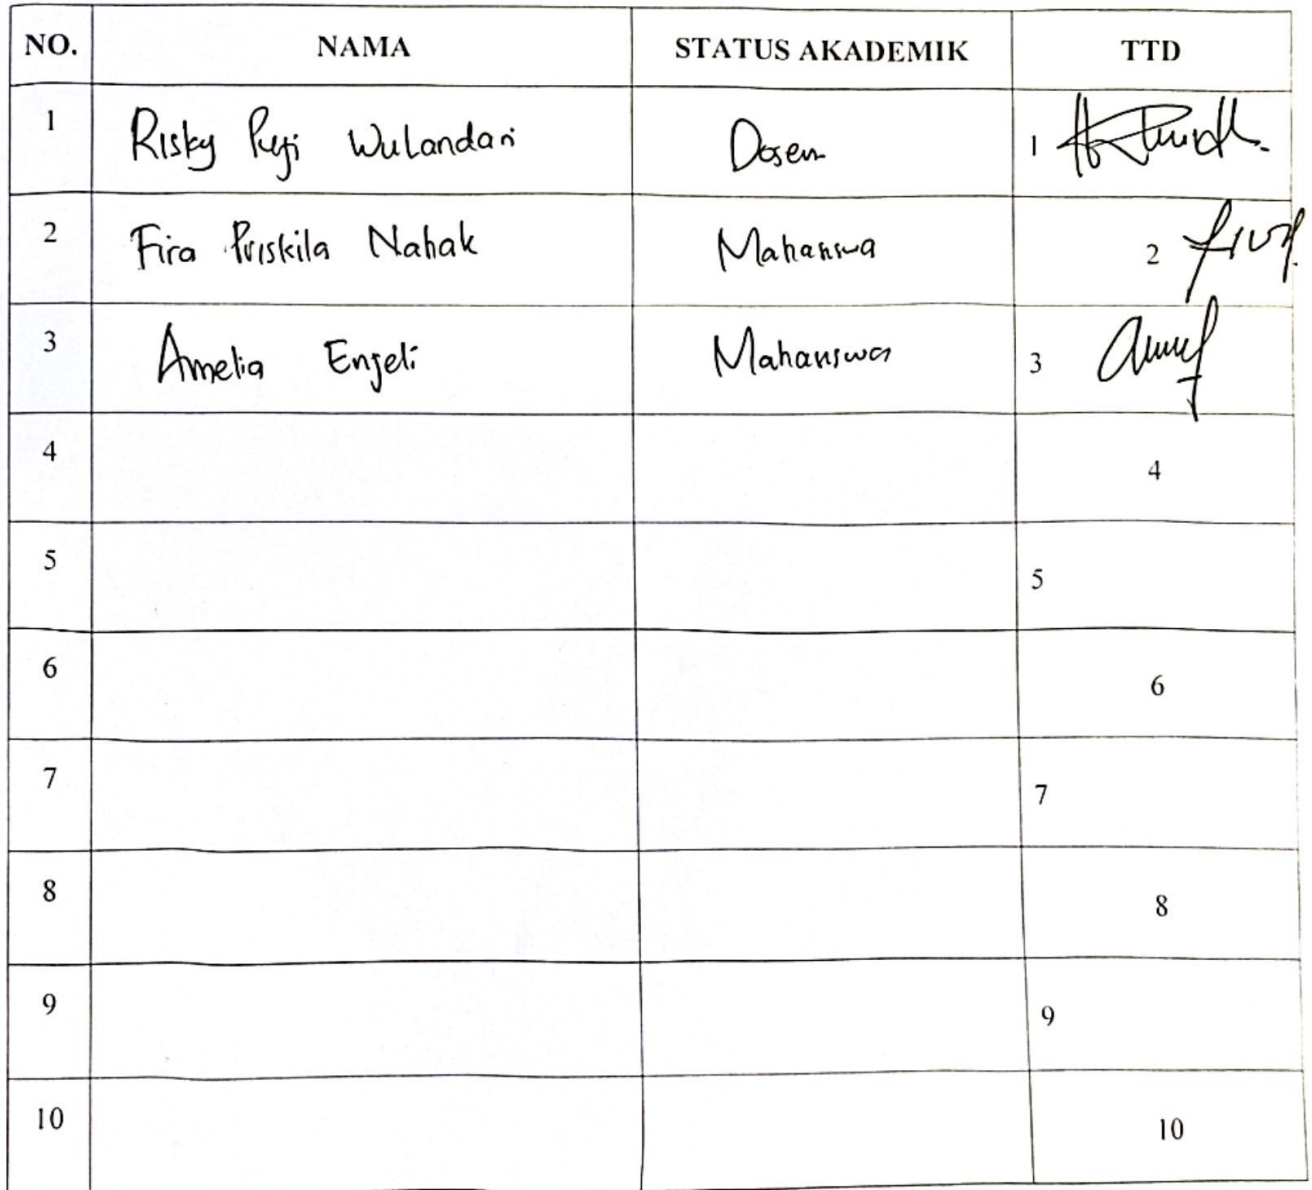 NO. NAMA STATUS AKADEMIK TTD
1 Risky Puji Wulandari Dosen 1
2 Fira Priskila Nahak Mahasiswa 2
3 Amelia Enjeli Mahasiswa 3
4 4
5 5
6 6
7 7
8 8
9 9
10 10